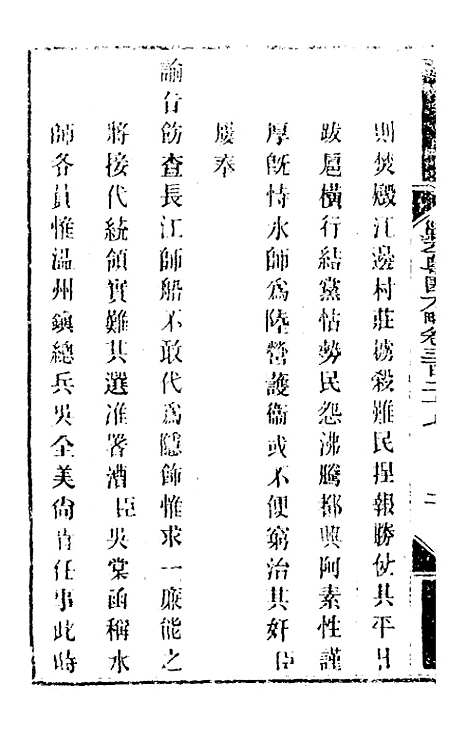 則焚燬江邊村莊擄殺難民捏報勝仗其平日
跋扈橫行結黨怙勢民怨沸騰都興阿素性謹
厚旣恃水師爲陸營護衞或不便窮治其奸臣
屢奉
諭旨飭查長江師船不敢代爲隱飾惟求一廉能之
將接代統領實難其選准署漕臣吳棠函稱水
師各員惟温州鎮總兵吳全美尙肯任事此時
方略卷三百二十七
二